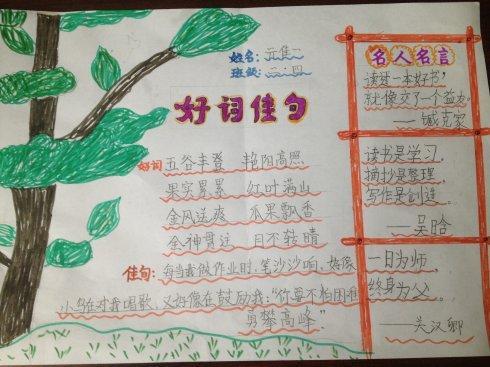 姓名:元佳二
班级:二·四
好词佳句
好词 五谷丰登 艳阳高照
果实累累 红叶满山
金风送爽 瓜果飘香
全神贯注 目不转睛
佳句:每当我做作业时,笔沙沙响,好像
小鸟在对我唱歌,又好像在鼓励我:“你要不怕困难
勇攀高峰”
名人名言
读过一本好书,
就像交了一个益友。
——臧克家
读书是学习,
摘抄是整理,
写作是创造。
——吴晗
一日为师,
终身为父。
——关汉卿